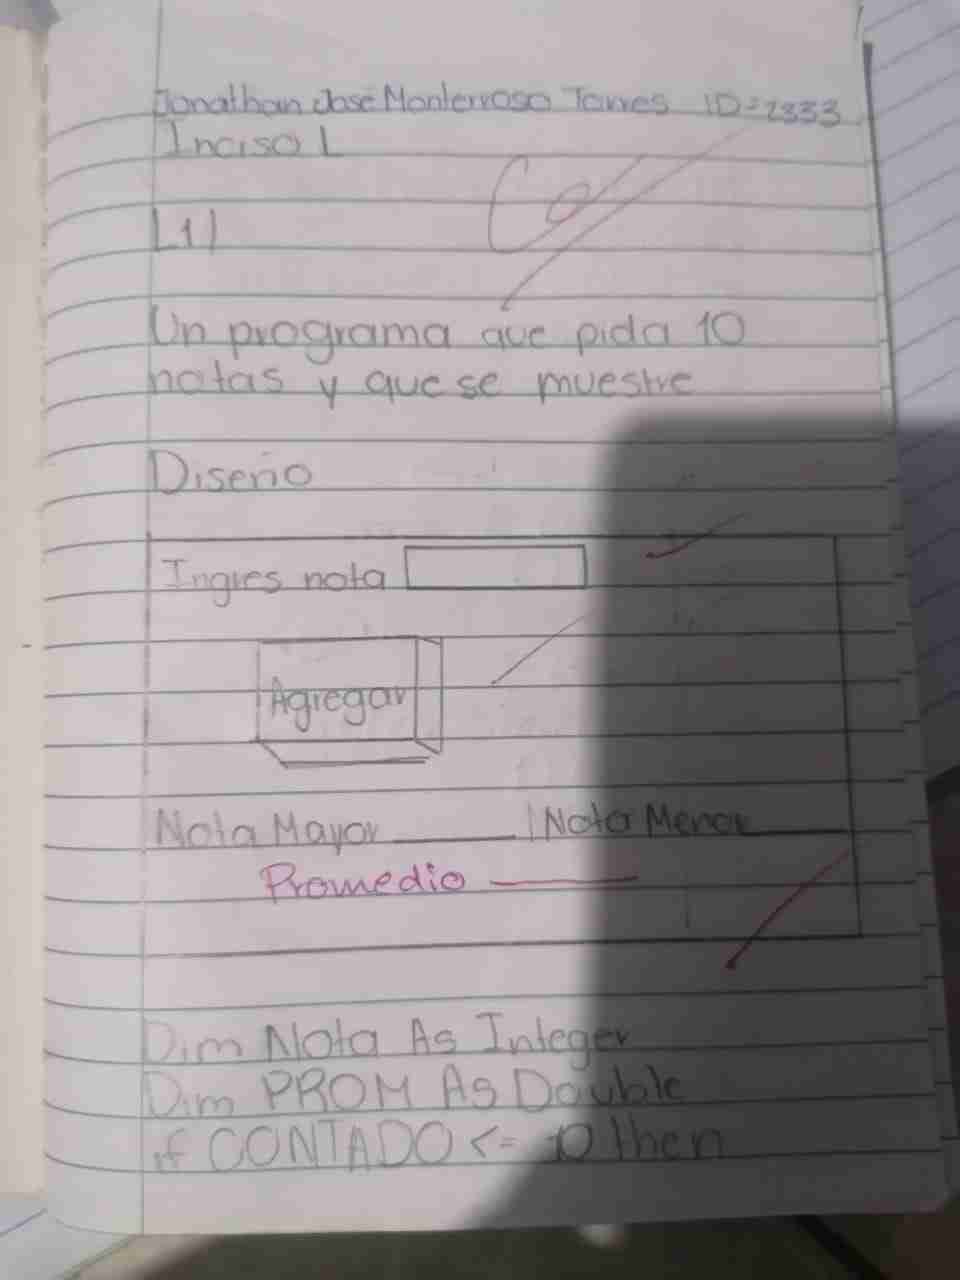 Jonathan José Monterroso Torres ID=2333
Inciso L
L1)
Un programa que pida 10
notas y que se muestre
Diseño
Ingres nota
Agregar
Nota Mayor ______ | Nota Menor ______
Promedio ______
Dim Nota As Integer
Dim PROM As Double
if CONTADO <= 10 then